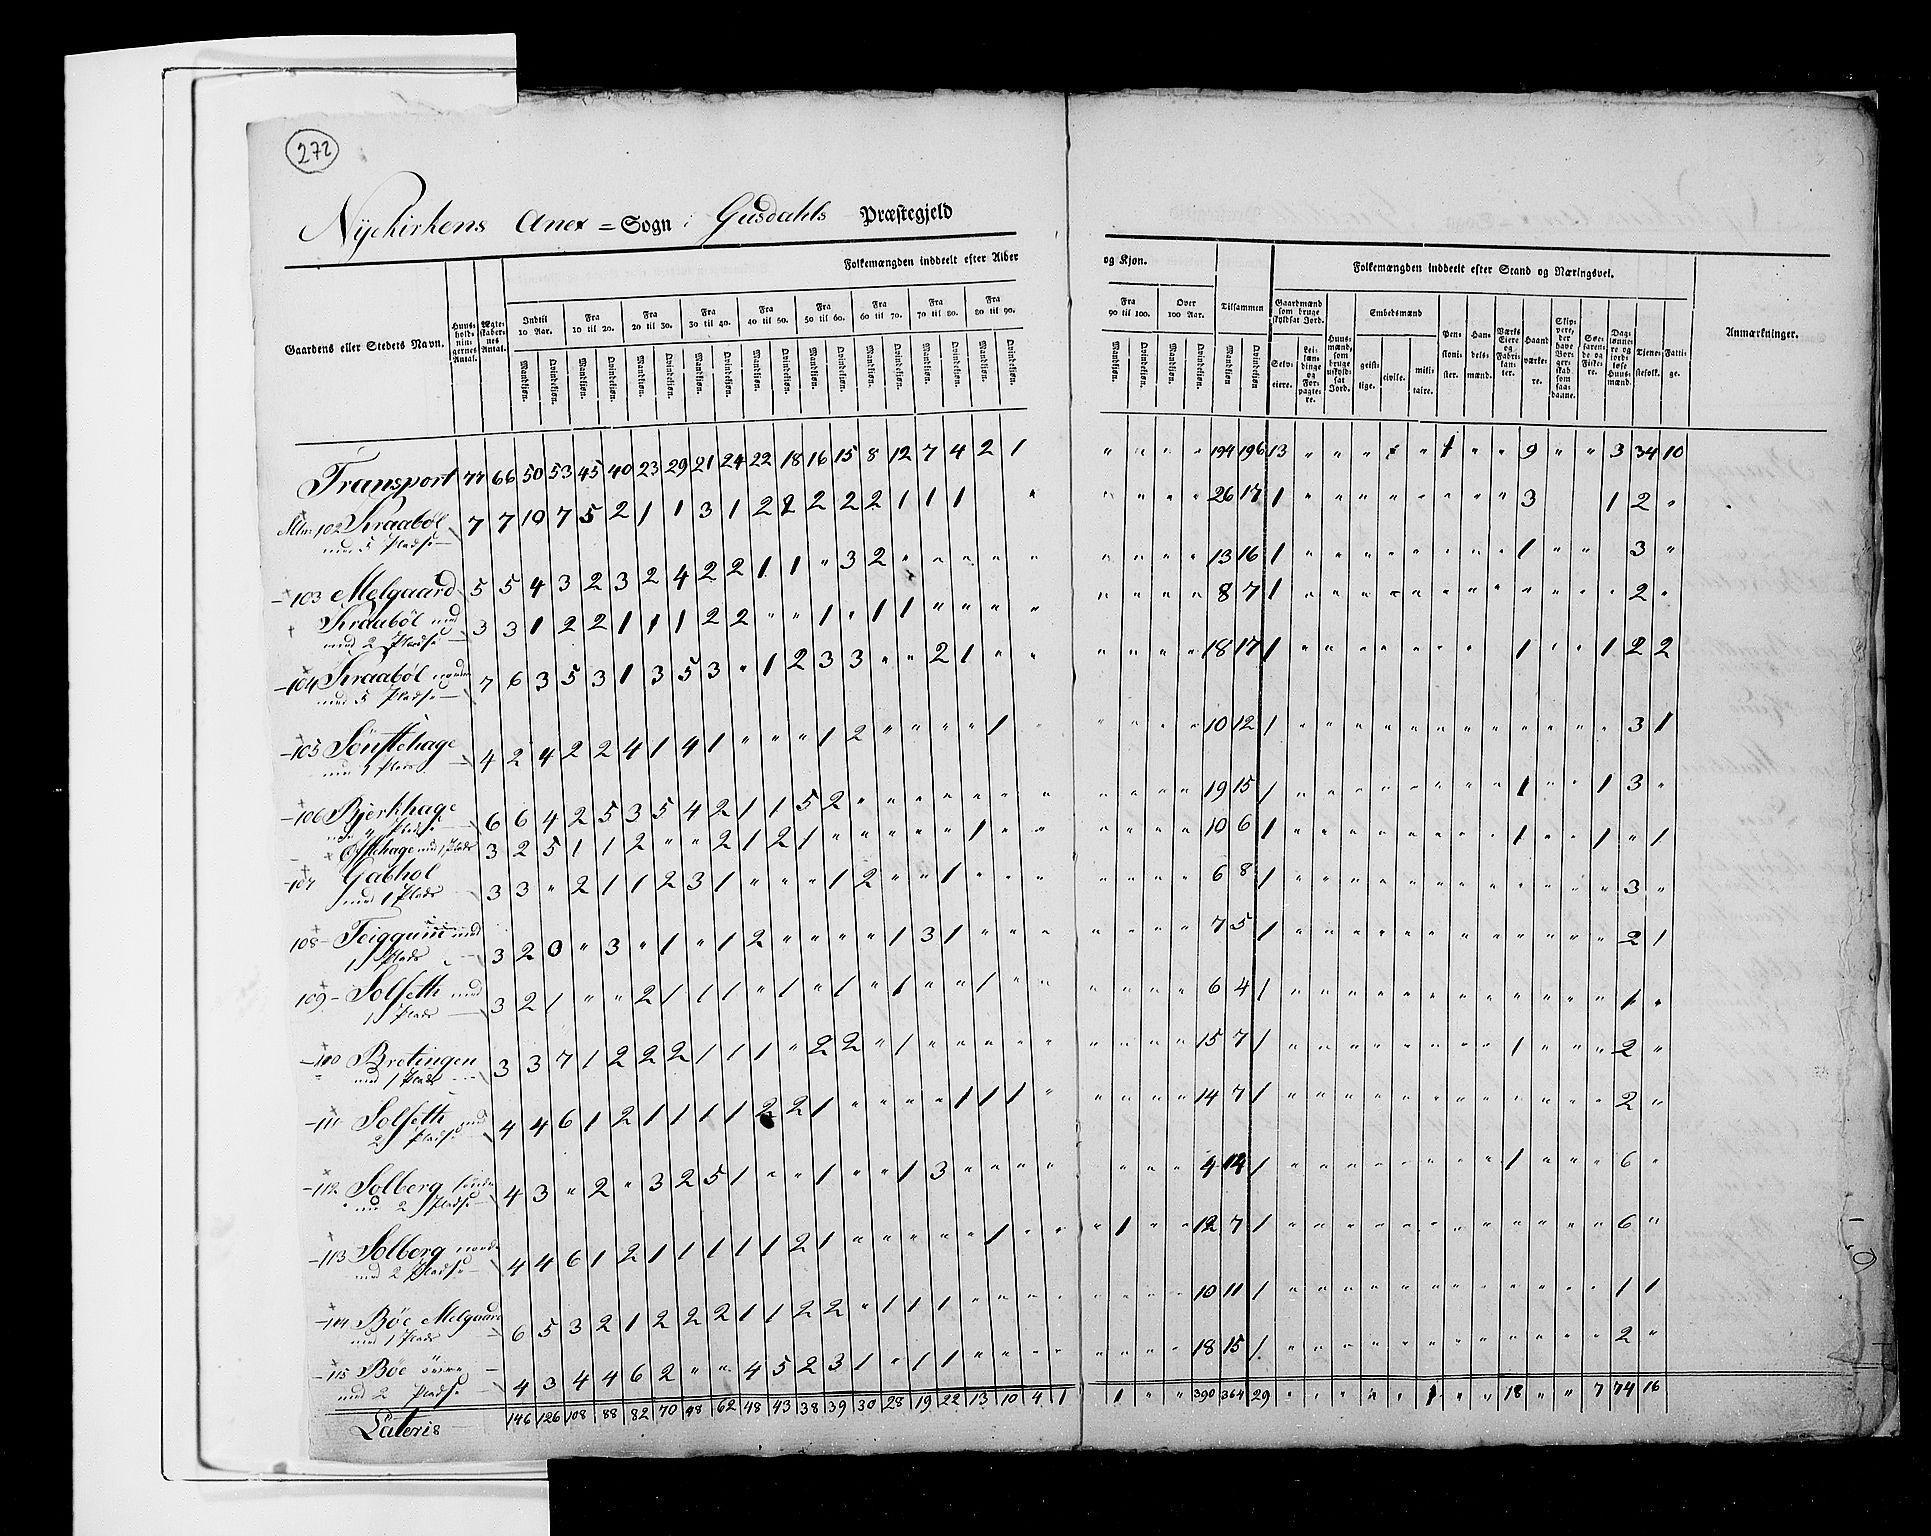 272
Nyekirkens Anex = Sogn i Gusdahls Præstegjeld
Folkemængden inddeelt efter Alder og Kjøn.
Folkemængden inddeelt efter Stand og Næringsvei.
Gaardens eller Stedets Navn.
Huus-holdnin-gernes Antal.
Ægte-skaber-nes Antal.
Indtil 10 Aar.
Fra 10 til 20.
Fra 20 til 30.
Fra 30 til 40.
Fra 40 til 50.
Fra 50 til 60.
Fra 60 til 70.
Fra 70 til 80.
Fra 80 til 90.
Fra 90 til 100.
Over 100 Aar.
Tilsammen
Mandkjøn. Qvindekjøn.
Gaardmænd som bruge skyldsat Jord.
Selv-eiere.
Lei-læn-dinge og For-pagte-re.
Huus-mænd, som bruge uskyld-sat Jord.
Embedsmænd
geist-lige.
civile.
mili-taire.
Pen-sioni-ster.
Han-dels-mænd.
Værks Eiere og Fabri-kan-ter.
Haand værke-re.
Skip-pere, der have Bor-ger-skab som saa-danne.
Søe-farende og Fiske-re.
Dag-lønne-re og jord-løse Huus-mænd.
Tjene-stefolk.
Fatti-ge.
Anmærkninger.
Transport 77 66 50 53 45 40 23 29 21 24 22 18 16 15 8 12 7 4 2 1 " " " " 194 196 13 " " " 1 " 1 " " 9 " " 3 34 10
102 Kraabøl 7 7 10 7 5 2 1 1 3 1 2 2 2 2 2 1 1 1 " " " " " 26 17 1 " " " " " " " " 3 1 2 "
med 5 Pladse
103 Melgaard 5 5 4 3 2 3 2 4 2 2 1 1 " 3 2 " " " " " " " " " 13 16 1 " " " " " " " " 1 " " 3 "
Kraabøl
med 2 Pladse 3 3 1 2 2 1 1 1 2 2 " " 1 " 1 1 " " " " " " " " 8 7 1 " " " " " " " " " " " " 2 "
104 Kraabøl 7 6 3 5 3 1 3 5 3 " 1 2 3 3 " " 2 1 " " " " " " 18 17 1 " " " " " " " " 1 " " 1 2 2
med 5 Pladse
105 Sønstehage 4 2 4 2 2 4 1 4 1 " " " 1 2 " " " " 1 " " " " " 10 12 1 " " " " " " " " " " " " 3 1
106 Bjerkhage 6 6 4 2 5 3 5 4 2 1 1 5 2 " " " " " " " " " " " 19 15 1 " " " " " " " " 1 " " 1 3 "
Østehage med 1 Plads 3 2 5 1 1 2 " " 2 1 2 1 " " " " " 1 " " " " " " 10 6 1 " " " " " " " " 1 " " 1 " 1
107 Gabhol 3 3 " 2 1 1 2 3 1 " " " 1 2 " " 1 " " " " " " " 6 8 1 " " " " " " " " " " " " 3 "
med 1 Plads
108 Teiggum med 3 2 0 " 3 " 1 " 1 2 " " " " 1 3 1 " " " " " " " 7 5 1 " " " " " " " " " " " " 2 1
1 Plads
109 Solseth med 3 2 1 " " 2 1 1 1 " 1 " 1 " 1 " " 1 " " " " " " 6 4 1 " " " " " " " " " " " " 1 "
1 Plads
110 Bretingen 3 3 7 1 2 2 2 1 1 1 " 2 2 " 1 " " " " " " " " " 15 7 1 " " " " " " " " 1 " " " 2 "
med 1 Plads
111 Solseth med 4 4 6 1 2 1 1 1 1 2 2 1 " " " " 1 1 1 " " " " " 14 7 1 " " " " " " " " " " " " 2 "
2 Pladse
112 Solberg 4 3 " 2 " 3 2 5 1 " " 1 " " 1 3 " " " " " " " 4 14 1 " " " " " " " " 1 " " " 6 "
med 2 Pladse
113 Solberg 4 4 6 1 2 1 1 1 1 1 2 1 " " " " " 1 " " " 1 " " 12 7 1 " " " " " " " " " " " " 6 "
med 2 Pladse
114 Bøe Melgaard 6 5 3 2 1 2 2 2 1 1 2 2 " 1 1 1 " " " " " " " " 10 11 1 " " " " " " " " " " " " 1 1
med 1 Plads
115 Bøe 4 3 4 4 6 2 " " 4 5 2 3 1 " 1 1 " " " " " " " " 18 15 1 " " " " " " " " " " " " 2 "
med 2 Pladse
Lateris 146 126 108 88 82 70 48 62 48 43 38 39 30 28 19 22 13 10 4 1 1 " " " 390 364 29 " " " " " 1 " " 18 " " 7 74 16